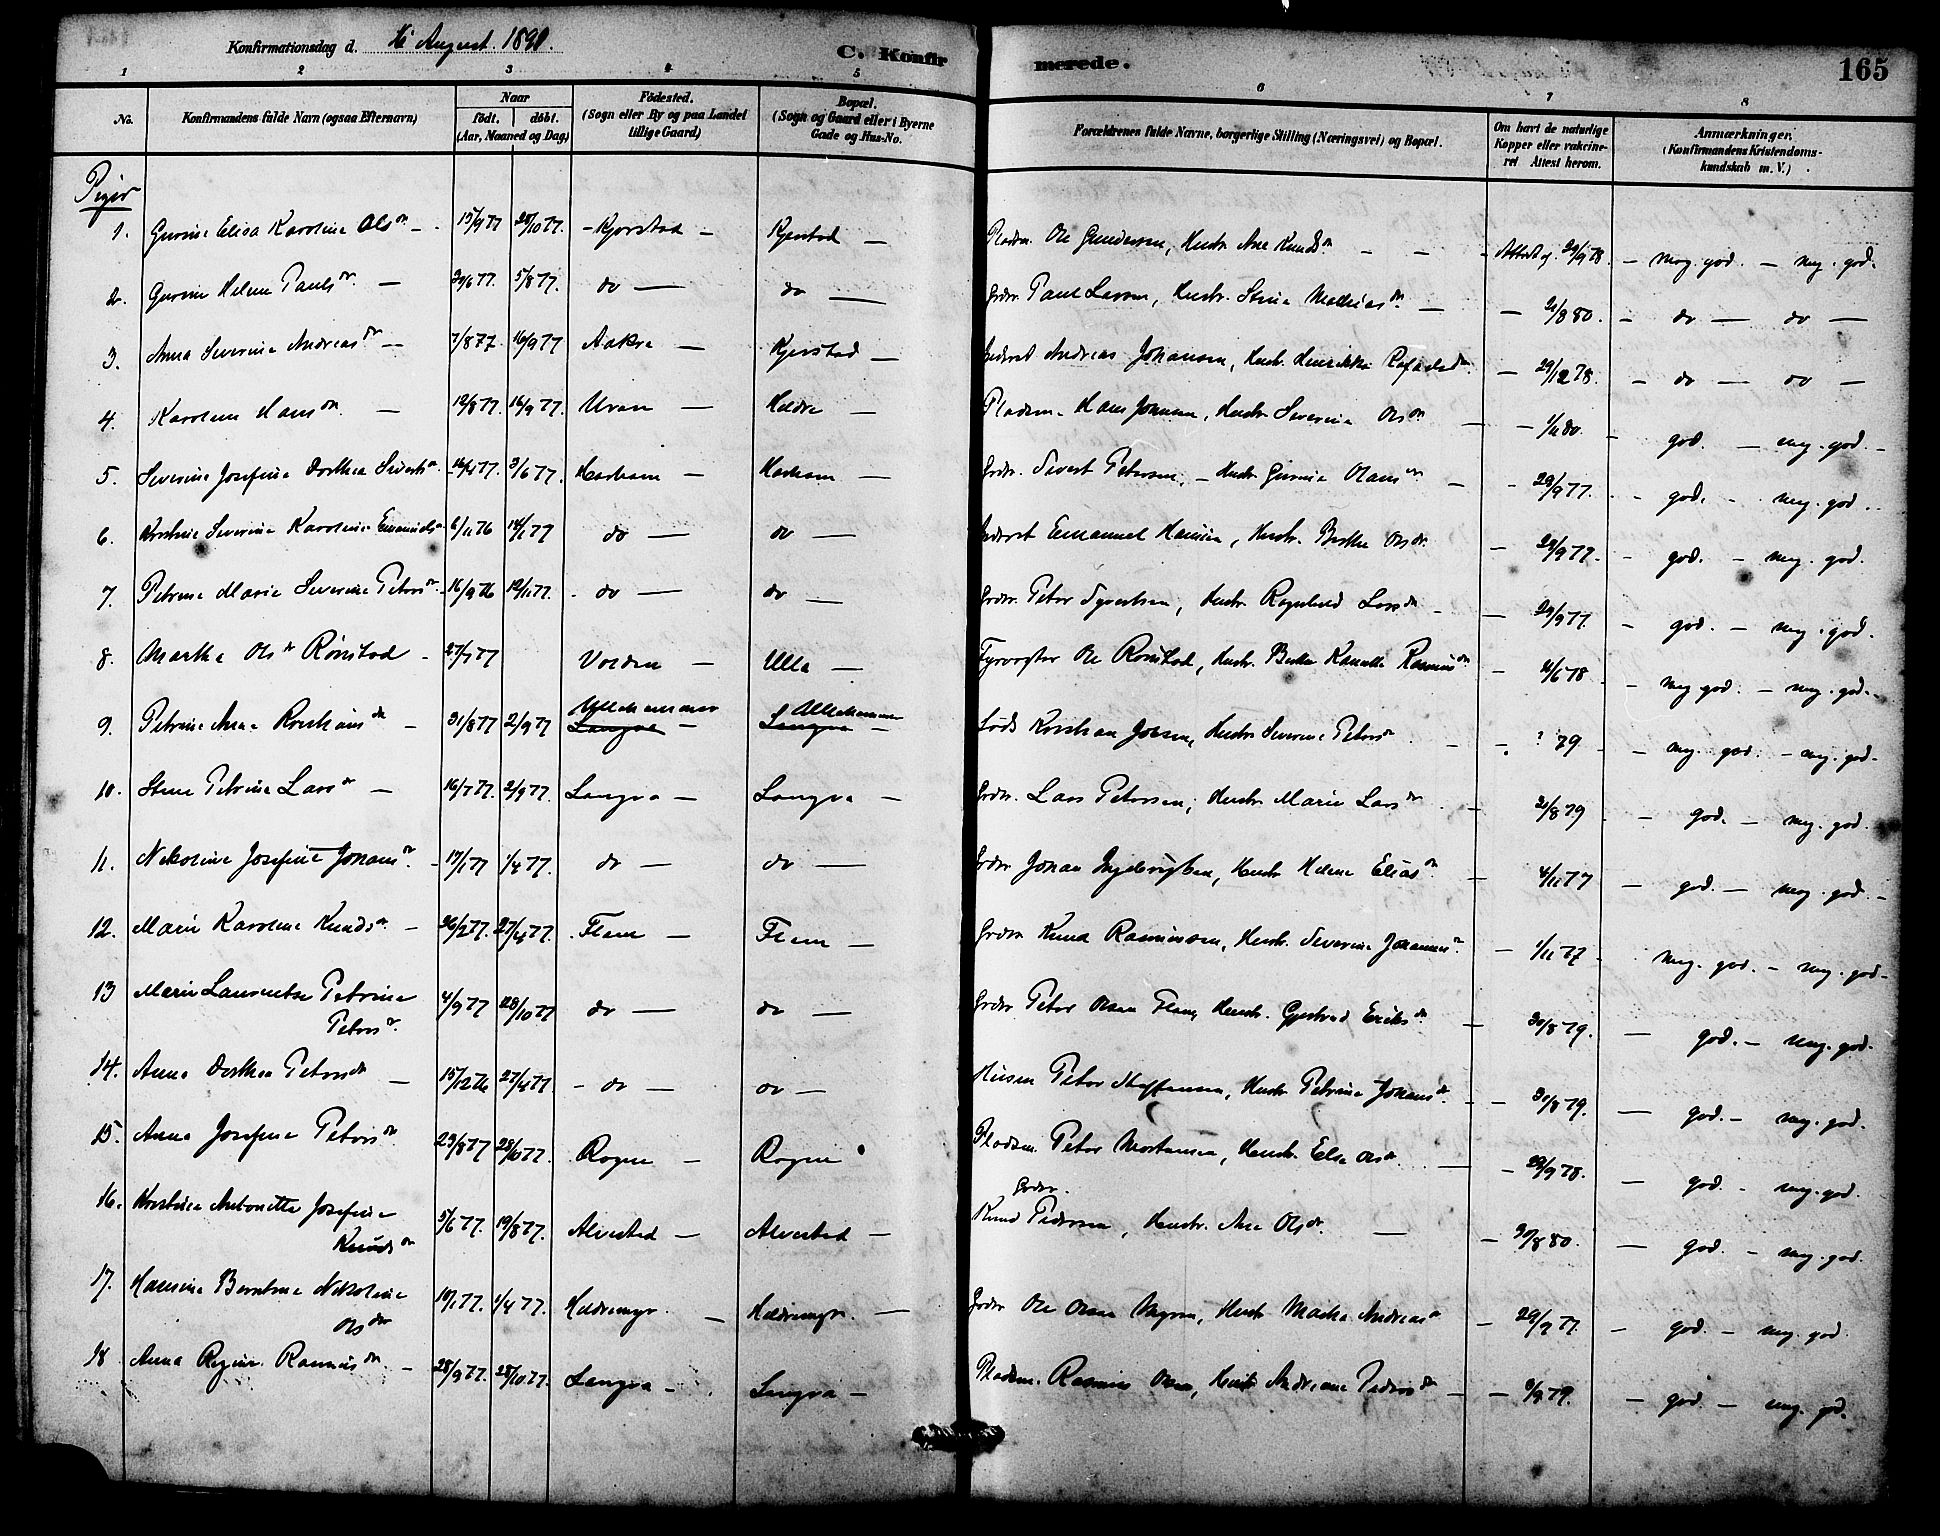 Konfirmationsdag d. 16 August 1891.
C. Konfirmerede.
165
1 2 3 4 5 6 7 8
No.
Konfirmandens fulde Navn (ogsaa Efternavn)
Naar
födt. döbt.
(Aar, Maaned og Dag)
Födested.
(Sogn eller By og paa Landet
tillige Gaard)
Bopæl.
(Sogn og Gaard eller i Byerne
Gade og Hus-No.
Forældrenes fulde Navne, borgerlige Stilling (Næringsvei) og Bopæl.
Om havt de naturlige
Kopper eller vakcine-
ret Attest herom.
Anmærkninger.
(Konfirmandens Kristendoms-
kundskab m. V.)
Piger
1. Gurine Elisa Karoline Olsdr — 15/9 77 28/10 77. — Kjerstad — Kjerstad — Pladsm. Ole Gundersen, Hustr. Ane Knudsdr. — — Attest af 29/9 78. — meg. god. — meg. god.
2. Gurine Helene Paulsdr. — 5/8 77. do — do — Grdbr. Paul Larsen, Hustr. Stine Mathiasdr. — — 21/8 80. — do — do —
3. Anna Severine Andreasdr — 7/8 77 16/9 77 Aakre — Kjerstad — Inderst Andreas Johansen, Hustr. Henrikke Rafaelsdr. — 29/12 78. — do — do —
4. Karoline Hansdr. — 12/8 77. 16/9 77. Uran — Hildre — Pladsm. Hans Johnsen, Hustr. Severine Olsdr — — 1/11 80. — god. — meg. god. —
5. Severine Josefine Dorthea Sivertsdr. 16/4 77. 3/6 77. Harham — Harham — Grdbr. Sivert Petersen, — Hustr. Gurine Olausdr — — 29/9 77. — god. — meg. god.
6. Kristine Severine Karoline Emanuelsdr. 6/11 76 14/1 77 do — do — Inderst Emanuel Hansen, Hustr. Berthe Olsdr. — 29/9 77. — god. — meg. god.
7. Petrine Marie Severine Petersdr. 16/9 76 12/11 77. — do — do — Grdbr. Peter Syvertsen, Hustr. Ragnhild Larsdr — — 29/9 77. — god. — meg. god.
8. Martha Olsdr Rønstad — 27/7 77 Volden — Ulla — Fyrvogter Ole Rønstad, Hustr. Berthe Rasmusdr. — 4/6 78 — meg god. — meg. god.
9. Petrine Anna Kristiansdr — 31/8 77 2/9 77 Ullehammer Longva — Ullahammer Longva — Lods Kristian Joesen, Hustr Severine Petersdr — ? 79 — meg. god. — meg. god.
10. Stine Petrine Larsdr — 16/7 77. 2/9 77. Longva — Longva — Grdbr. Lars Petersen, Hustr Marie Larsdr — 21/8 79 — god. — meg. god.
11. Nikoline Josefine Johansdr. — 17/1 77 1/4 77. do — do — Grdbr Johan Ingebrigtsen, Hustr Helene Eliasdr — 4/11 77 — god. — meg. god. —
12. Marie Karoline Knudsdr. — 26/2 77. 27/4 77. Flem — Flem — Grdbr Knud Rasmussen, Hustr. Severine Johannesdr. — 1/11 77 — meg. god. — meg. god.
13 Marie Laurentse Petrine
Petersdr. 4/9 77 28/10 77 do — do — Grdbr Peter Olsen Flem, Hustr. Gjertrud Eriksdr. — 30/8 79. — god. — meg. god.
14. Anne Dorthea Petersdr — 15/12 76 27/4 77. — do — do — Husm Peter Steffensen, Hustr Petrine Johansdr. — 31/8 79. — god. — meg. god.
15. Anna Josefine Petersdr. 23/8 77 28/10 77. Rogne — Rogne Pladsm. Peter Mortensen, Hustr. Else Olsdr. — — 29/9 78. — god. — meg. god.
16. Kristine Antonette Josefine
Knudsdr 5/6 77. 19/8 77. Alvestad — Alvestad — Grdbr.
Knud Pedersen, Hustr. Ane Olsdr. — — 30/8 80. — god. — meg. god.
17. Hansine Berntine Nikoline
Olsdr 10/1 77. 1/4 77. Hildremyr. — Hildremyr. — Grdbr Ole Olsen Myren, Hustr Martha Andreasdr — 29/9 77. — god. — meg. god.
18 Anna Regine Rasmusdr. — 28/9 77. 28/10 77. Longva — Longva — Pladsm. Rasmus Olsen, Hustr Andreane Pedersdr — — 9/9 79. — god. — meg. god.